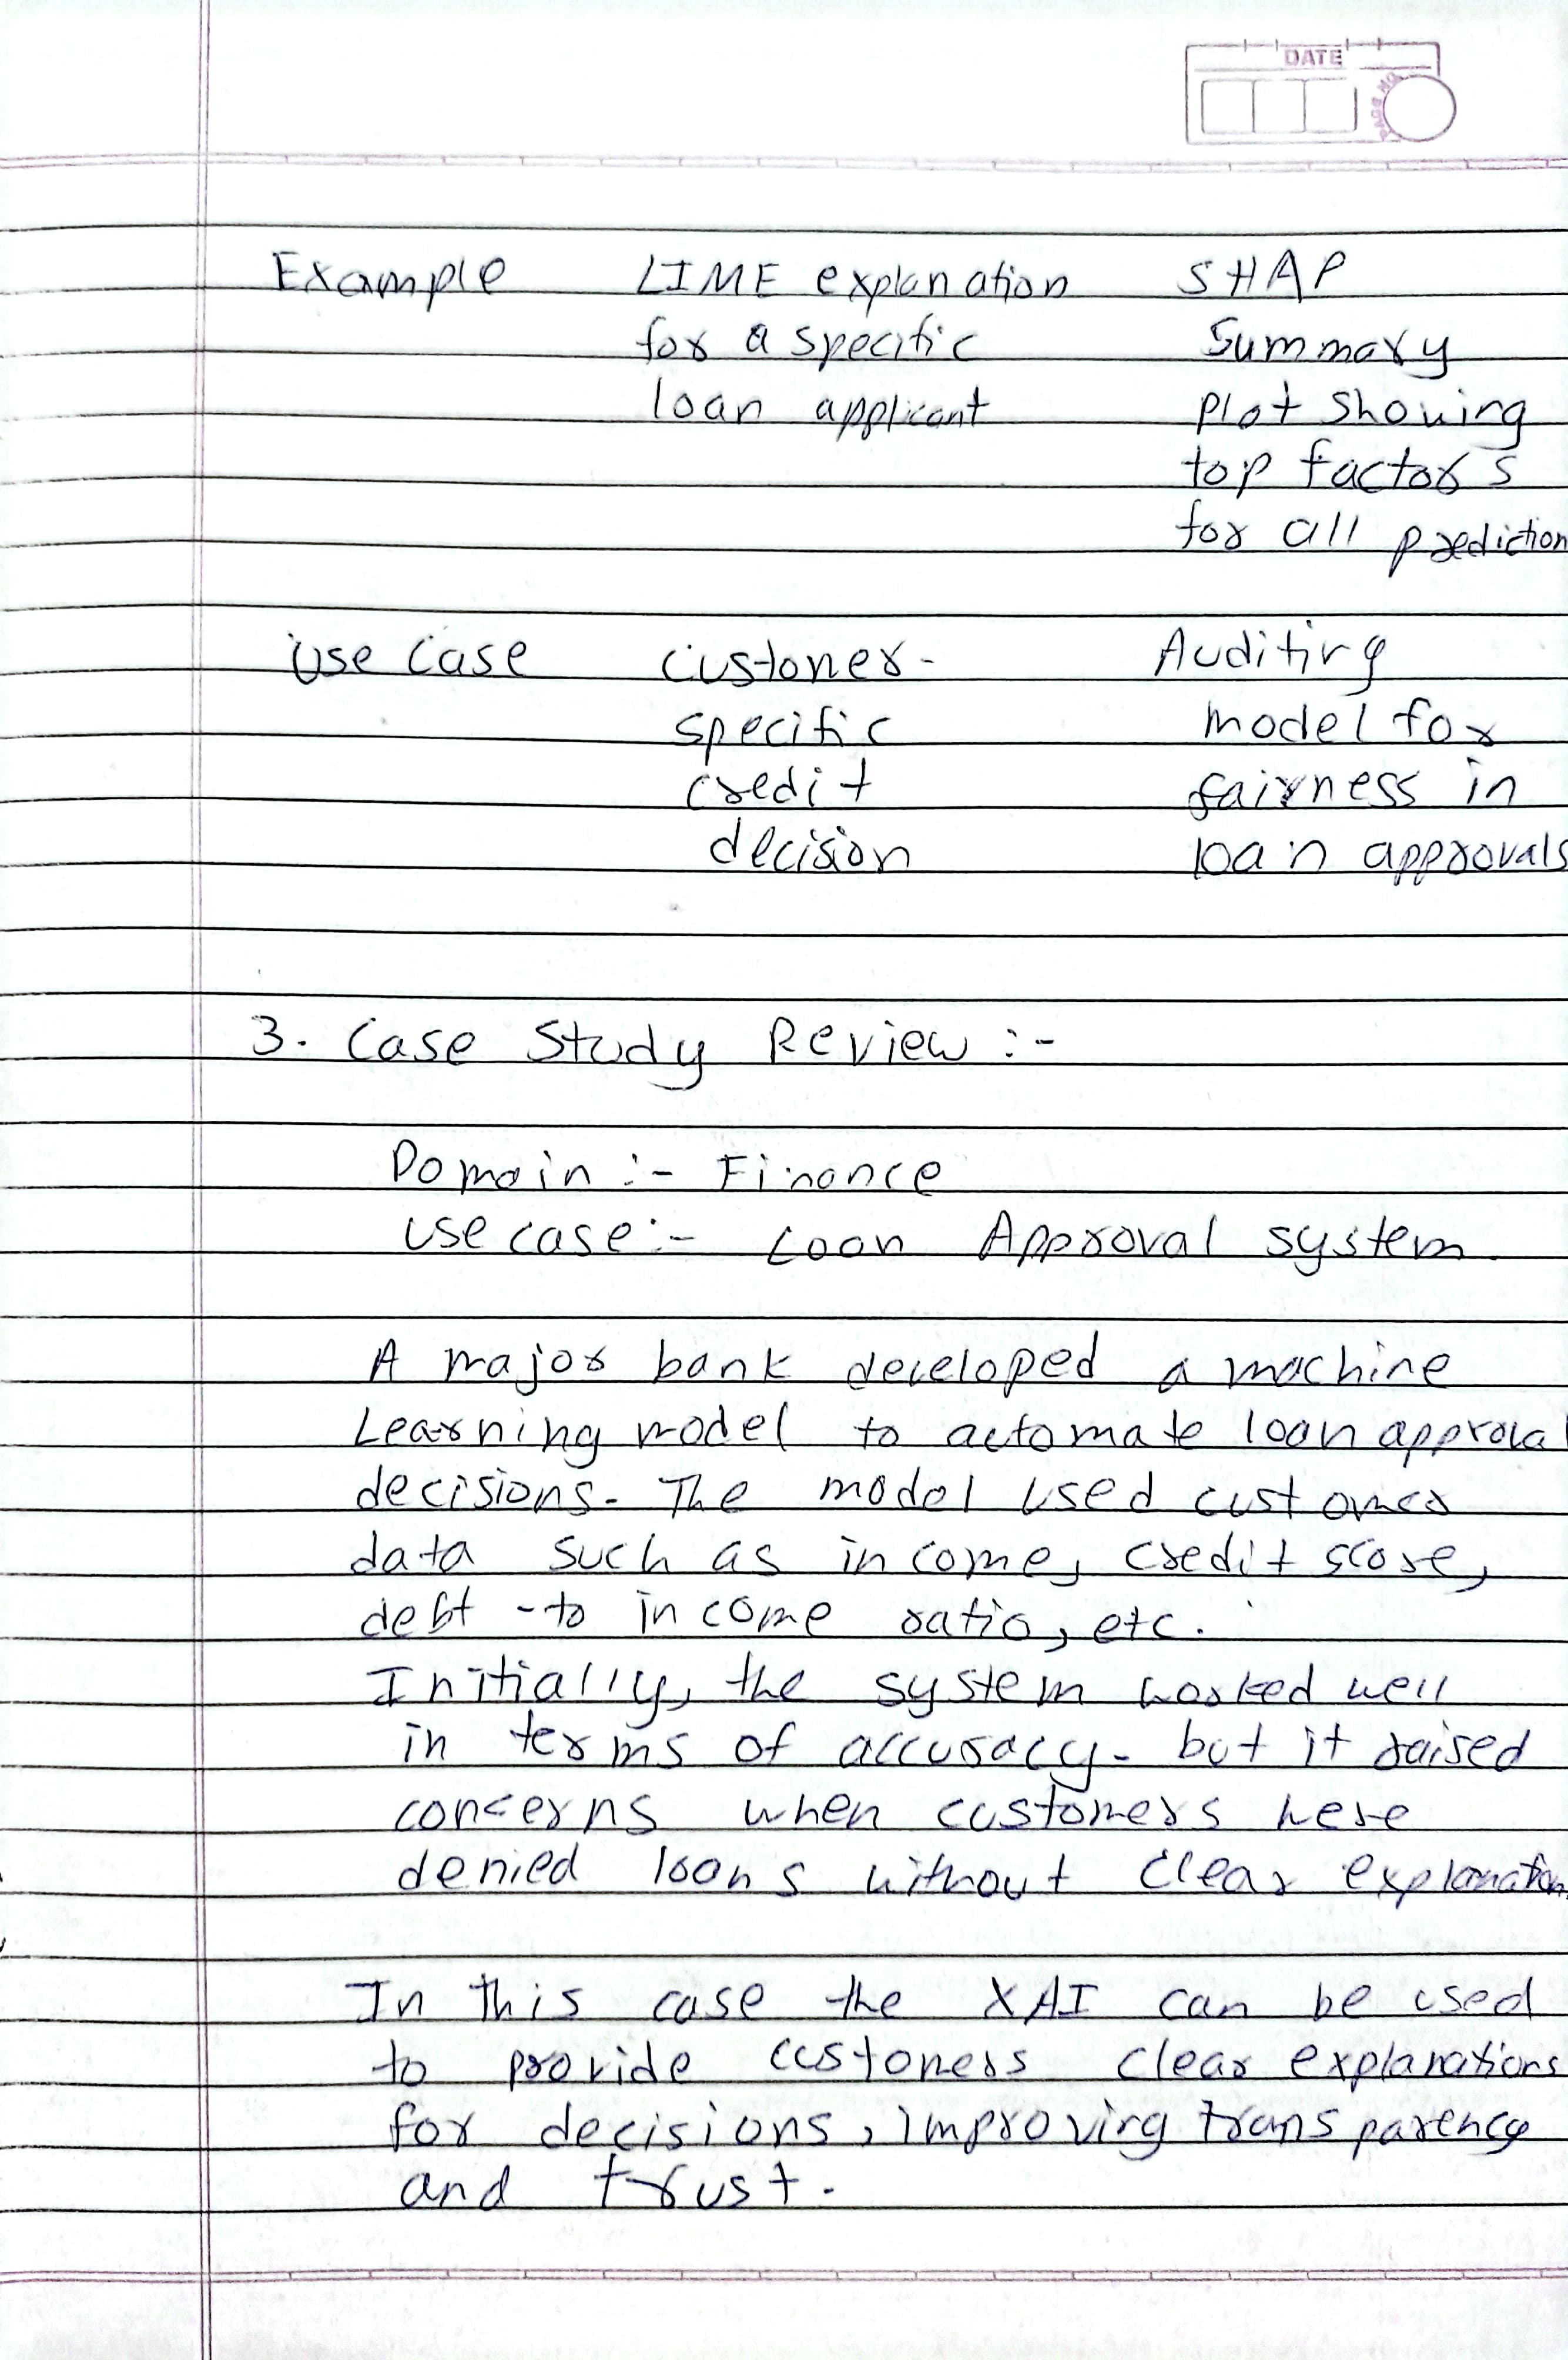 DATE
PAGE NO
Example LIME explanation SHAP
for a specific Summary
loan applicant plot showing
top factors
for all prediction
Use Case Customer- Auditing
specific model for
credit fairness in
decision loan approvals
3. Case Study Review :-
Domain :- Finance
use case:- Loan Approval system.
A major bank developed a machine
Learning model to automate loan approval
decisions. The model used customer
data such as income, credit score,
debt -to income ratio, etc.
Initially, the system worked well
in terms of accuracy. but it raised
concerns when customers were
denied loans without clear explanation.
In this case the XAI can be used
to provide customers clear explanations
for decisions, improving transparency
and trust.